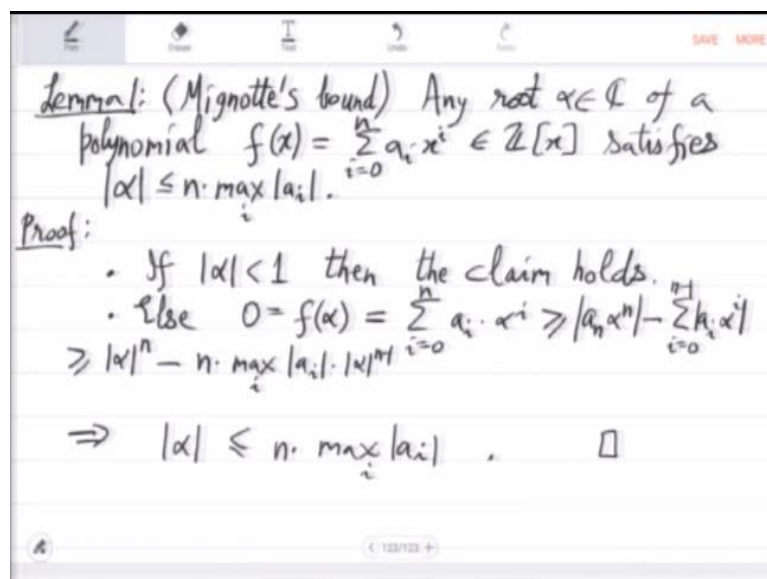 Pen Eraser Text Undo Redo SAVE MORE
Lemma1: (Mignotte's bound) Any root α∈ ℂ of a
polynomial f(x) = ∑_{i=0}^{n} a_i x^i ∈ ℤ[x] satisfies
|α| ≤ n· max_i |a_i|.
Proof:
· If |α| < 1 then the claim holds.
· Else 0 = f(α) = ∑_{i=0}^{n} a_i · α^i ≥ |a_n α^n| - ∑_{i=0}^{n-1} |a_i α^i|
≥ |α|^n - n· max_i |a_i| · |α|^{n-1}
⇒ |α| ≤ n· max_i |a_i| . □
< 123/123 +